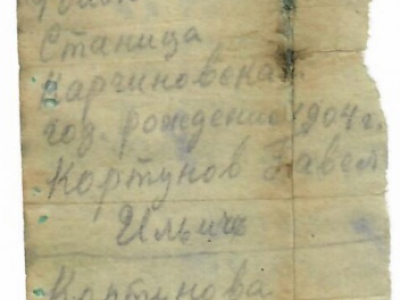 Станица
Каргиновская
год. рождение 1904 г.
Кортунов Павел
Ильичь
Кортунова